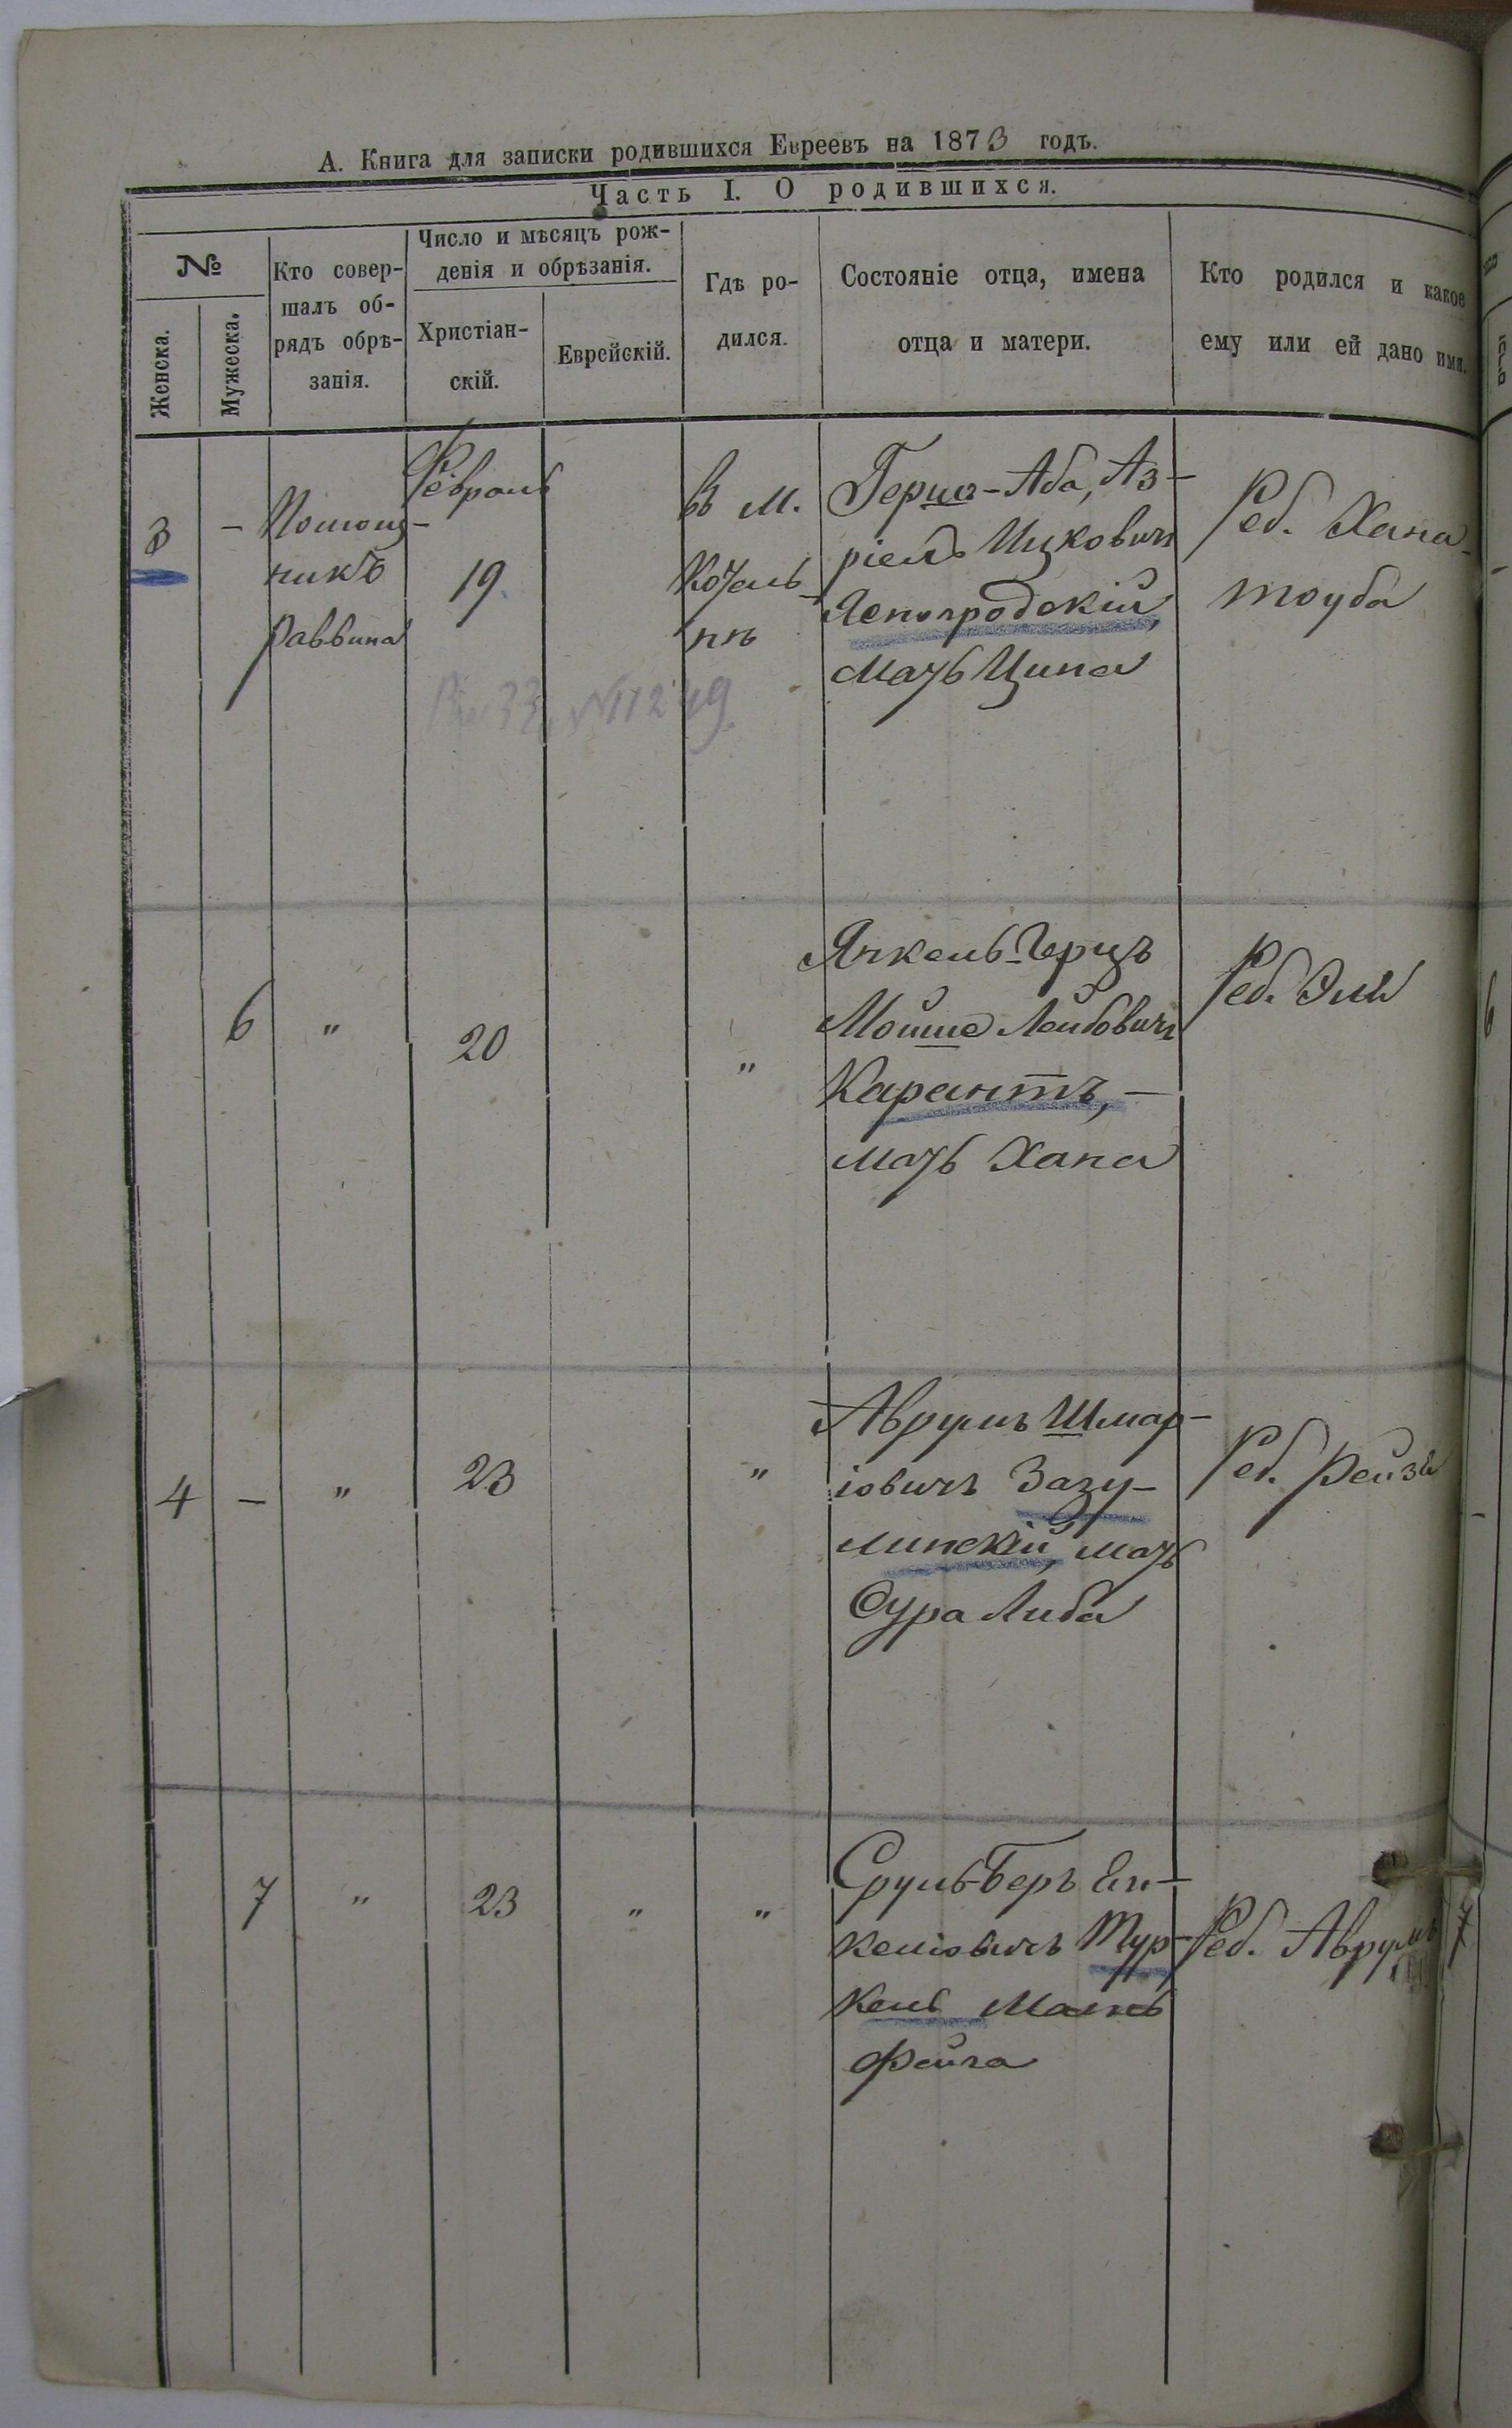 А. Книга для записки родившихся Евреевъ на 1873 годъ.
Часть I. О родившихся.
№
Женска.
Мужеска.
Кто совер-
шалъ об-
рядъ обрѣ-
занія.
Число и мѣсяцъ рож-
денія и обрѣзанія.
Христіан-
скій.
Еврейскій.
Гдѣ ро-
дился.
Состояніе отца, имена
отца и матери.
Кто родился и какое
ему или ей дано имя.
3
-
Помощ-
никъ
Раввина
Февраль
19.
В м.
Кочель-
нѣ
Герша-Аба, Аз-
ріелъ Ицковичъ
Ясногродскій,
мать Ципа
Реб. Хана-
тоуба
№11249
6
"
20
"
Янкель-Герцъ
Мойше Лейбовичъ
Карантъ, -
мать Хана
Реб. Эли
4
-
"
23
"
Аврумъ Шмар-
іовичъ Зазу-
линскій, мать
Сура Либа
Реб. Рейзя
7
"
23
"
"
Сруль-Беръ Ен-
келіовичъ Тур-
кель Мать
Фейга
Реб. Аврумъ
6
7